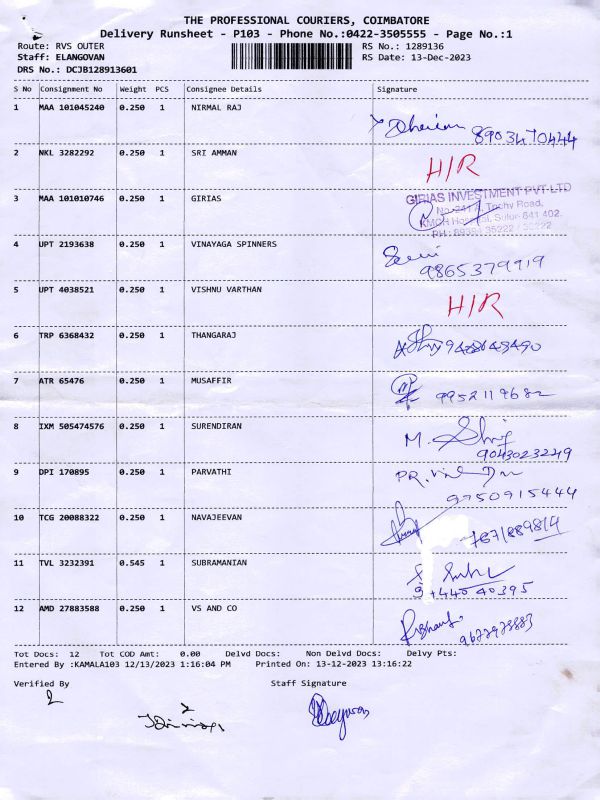 THE PROFESSIONAL COURIERS, COIMBATORE
Delivery Runsheet - P103 - Phone No.:0422-3505555 - Page No.:1
Route: RVS OUTER RS No.: 1289136
Staff: ELANGOVAN RS Date: 13-Dec-2023
DRS No.: DCJB128913601
S No Consignment No Weight PCS Consignee Details Signature
1 MAA 101045240 0.250 1 NIRMAL RAJ
8903470444
2 NKL 3282292 0.250 1 SRI AMMAN H/R
3 MAA 101010746 0.250 1 GIRIAS GIRIAS INVESTMENT PVT-LTD
Trichy Road,
KMCH Hospital, Sulur-641 402.
4 UPT 2193638 0.250 1 VINAYAGA SPINNERS
9865379919
5 UPT 4038521 0.250 1 VISHNU VARTHAN H/R
6 TRP 6368432 0.250 1 THANGARAJ
7 ATR 65476 0.250 1 MUSAFFIR
9952119682
8 IXM 505474576 0.250 1 SURENDIRAN M.
9043023249
9 DPI 170895 0.250 1 PARVATHI
9750915444
10 TCG 20088322 0.250 1 NAVAJEEVAN
11 TVL 3232391 0.545 1 SUBRAMANIAN
12 AMD 27883588 0.250 1 VS AND CO
Tot Docs: 12 Tot COD Amt: 0.00 Delvd Docs: Non Delvd Docs: Delvy Pts:
Entered By :KAMALA103 12/13/2023 1:16:04 PM Printed On: 13-12-2023 13:16:22
Verified By Staff Signature